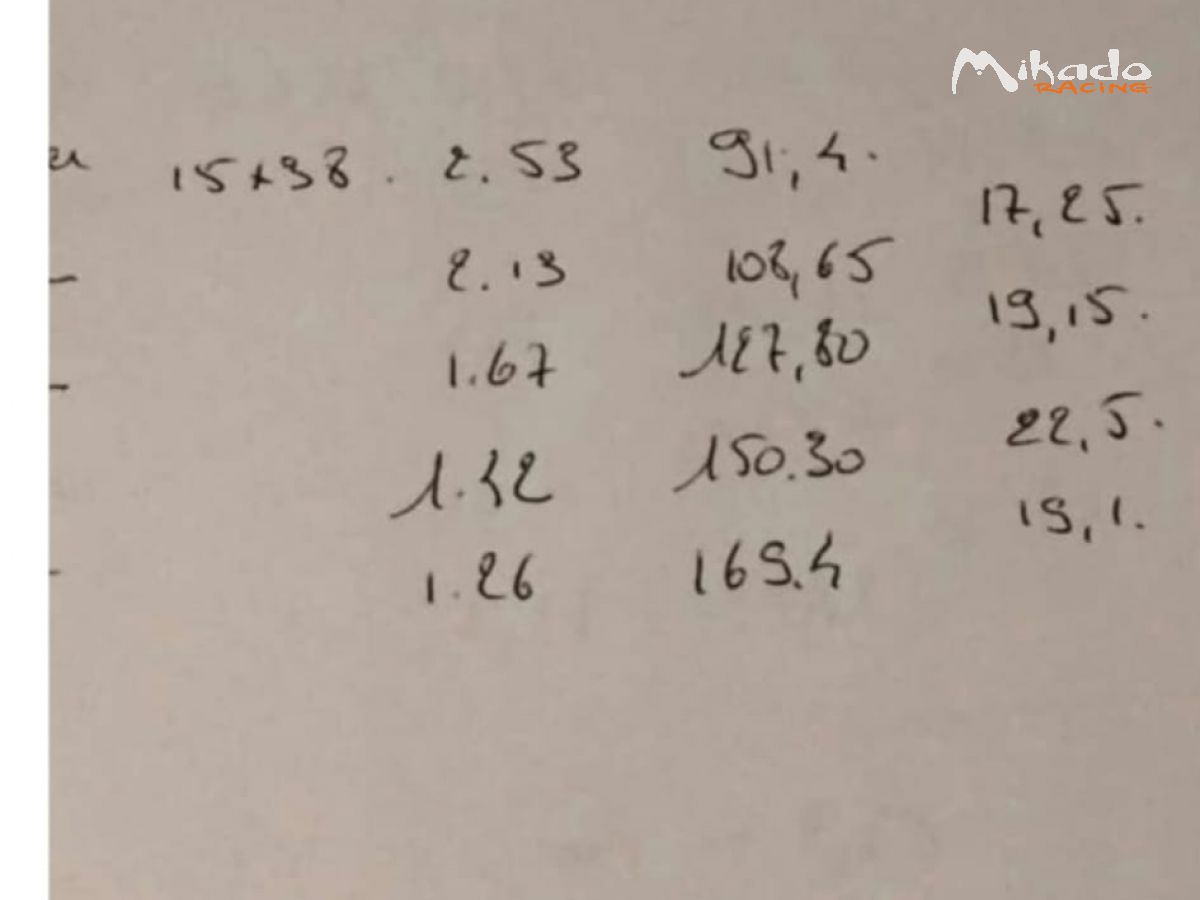 Mikado
RACING
15x38. 2.53 91,4.
17,25.
2.13 108,65
19,15.
1.67 127,80
22,5.
1.42 150.30
19,1.
1.26 169.4